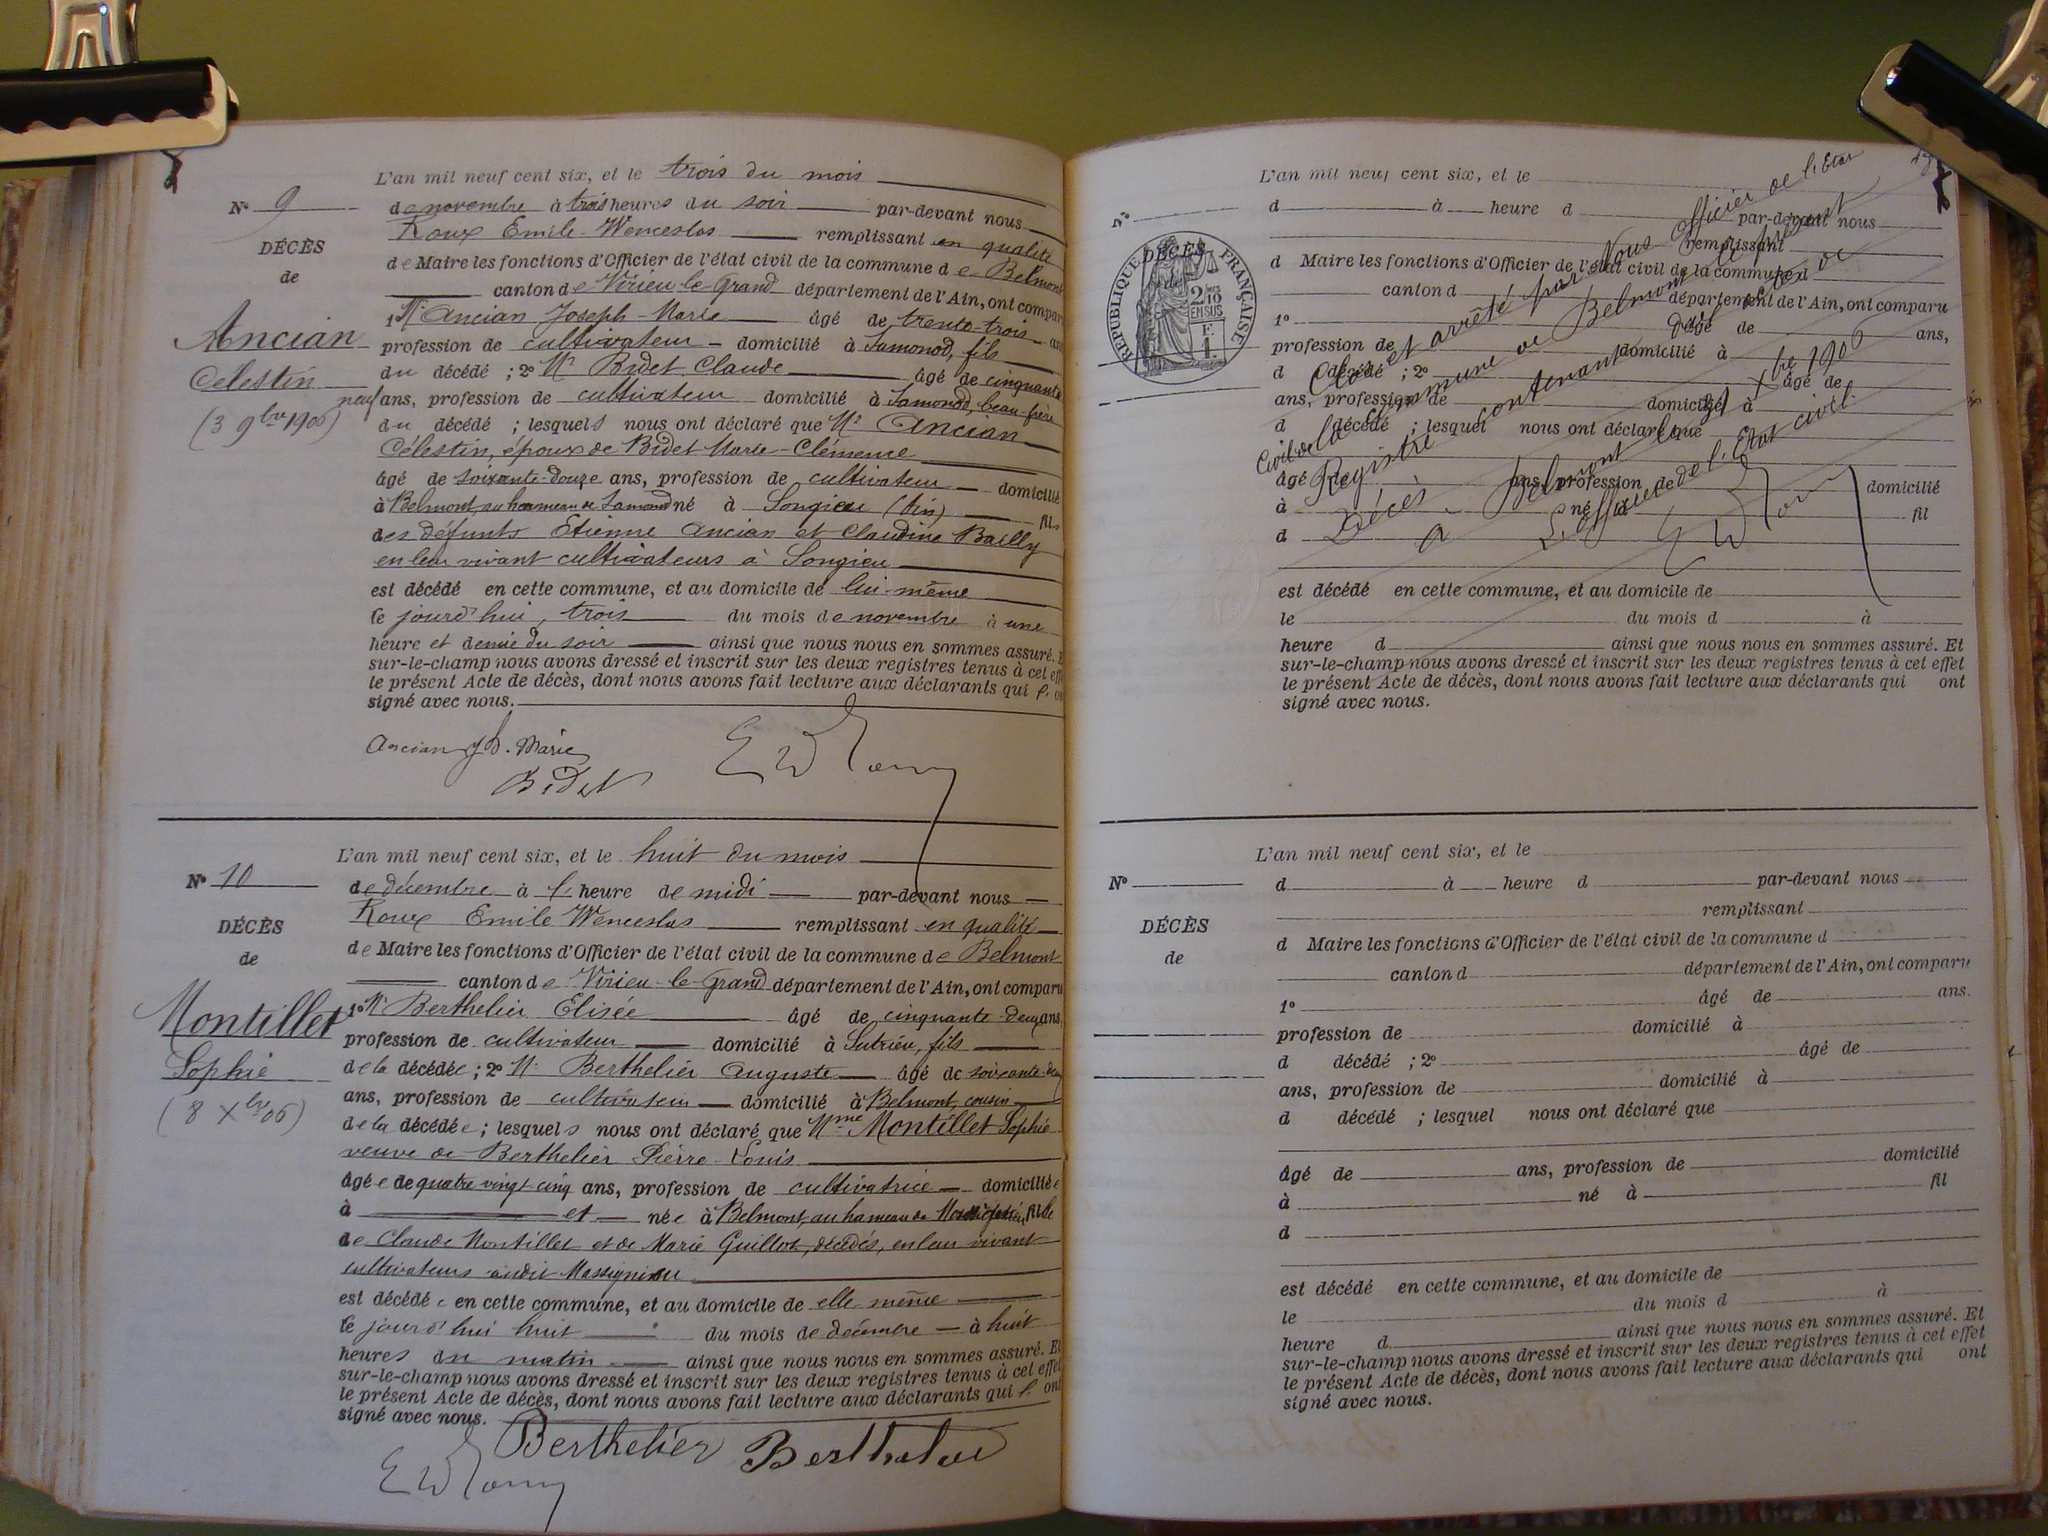 L'an mil neuf cent six, et le trois du mois
N° 9
de novembre à trois heures du soir par-devant nous
Roux Emile-Wenceslas remplissant en qualité
DÉCÈS
de Maire les fonctions d'Officier de l'état civil de la commune de Belmont
de
canton de Virieu-le-Grand département de l'Ain, ont compar
1° Mr Ancian Joseph-Marie âgé de trente-trois an
Ancian
profession de cultivateur domicilié à Samonod, fils
Célestin
du décédé ; 2° Mr Bidet Claude âgé de cinquante
(3 9bre 1906)
neuf ans, profession de cultivateur domicilié à Samonod, beau-frère
du décédé ; lesquels nous ont déclaré que Mr Ancian
Célestin, époux de Bidet Marie-Clémence
âgé de soixante-douze ans, profession de cultivateur domicilié
à Belmont, au hameau de Samonod né à Songieu (Ain) fils
des défunts Etienne Ancian et Claudine Bailly
en leur vivant cultivateurs à Songieu
est décédé en cette commune, et au domicile de lui-même
le jourd'hui, trois du mois de novembre à une
heure et demie du soir ainsi que nous nous en sommes assuré. E
sur-le-champ nous avons dressé et inscrit sur les deux registres tenus à cet effe
le présent Acte de décès, dont nous avons fait lecture aux déclarants qui l' on
signé avec nous.
Ancian Jh. Marie
Bidet
E W Roux
L'an mil neuf cent six, et le huit du mois
N° 10
de décembre à l' heure de midi par-devant nous
Roux Emile Wenceslas remplissant en qualité
DÉCÈS
de Maire les fonctions d'Officier de l'état civil de la commune de Belmont
de
canton de Virieu-le-Grand département de l'Ain, ont comparu
Montillet
1° Mr Berthelier Elisée âgé de cinquante-deux ans,
profession de cultivateur domicilié à Sutrieu, fils
Sophie
de la décédée ; 2° Mr Berthelier Auguste âgé de soixante-deux
(8 Xbre 06)
ans, profession de cultivateur domicilié à Belmont, cousin
de la décédée ; lesquels nous ont déclaré que Mme Montillet Sophie
veuve de Berthelier Pierre-Louis
âgée de quatre vingt cinq ans, profession de cultivatrice domiciliée
à et née à Belmont, au hameau de fille
de Claude Montillet et de Marie Guillot, décédés, en leur vivant
cultivateurs audit Massignieu
est décédée en cette commune, et au domicile de elle même
le jourd'hui huit du mois de décembre à huit
heures du matin ainsi que nous nous en sommes assuré. Et
sur-le-champ nous avons dressé et inscrit sur les deux registres tenus à cet effet
le présent Acte de décès, dont nous avons fait lecture aux déclarants qui l' ont
signé avec nous.
Berthelier Berthelier
E W Roux
L'an mil neuf cent six, et le
N°
d à heure d par-devant nous
remplissant
DÉCÈS
de
RÉPUBLIQUE FRANÇAISE
2/10 EN SUS
F. 1.
d Maire les fonctions d'Officier de l'état civil de la commune d
canton d département de l'Ain, ont comparu
1° âgé de ans,
profession de domicilié à
d décédé ; 2° âgé de
ans, profession de domicilié à
d décédé ; lesquel nous ont déclaré que
âgé de ans, profession de domicilié
à né à fil
d
est décédé en cette commune, et au domicile de
le du mois d à
heure d ainsi que nous nous en sommes assuré. Et
sur-le-champ nous avons dressé et inscrit sur les deux registres tenus à cet effet
le présent Acte de décès, dont nous avons fait lecture aux déclarants qui ont
signé avec nous.
Clos et arrêté par Nous Officier de l'Etat
Civil de la commune de Belmont le présent
Registre contenant dix actes de
Décès
A Belmont le 31 Xbre 1906
L'officier de l'Etat civil
E W Roux
L'an mil neuf cent six, et le
N°
d à heure d par-devant nous
remplissant
DÉCÈS
d Maire les fonctions d'Officier de l'état civil de la commune d
de
canton d département de l'Ain, ont comparu
1° âgé de ans.
profession de domicilié à
d décédé ; 2° âgé de
ans, profession de domicilié à
d décédé ; lesquel nous ont déclaré que
âgé de ans, profession de domicilié
à né à fil
d
est décédé en cette commune, et au domicile de
le du mois d à
heure d ainsi que nous nous en sommes assuré. Et
sur-le-champ nous avons dressé et inscrit sur les deux registres tenus à cet effet
le présent Acte de décès, dont nous avons fait lecture aux déclarants qui ont
signé avec nous.